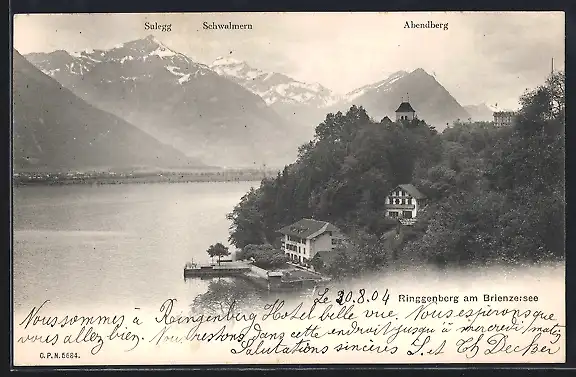 Sulegg Schwalmern Abendberg
Le 20.8.04 Ringgenberg am Brienzersee
Nous sommes à Ringgenberg Hotel belle vue. Nous esperons que
vous allez bien, Nous restons dans cette endroit jusqu à mercredi matin
Salutations sincères S. et Th Decker
C.P.N. 5684.